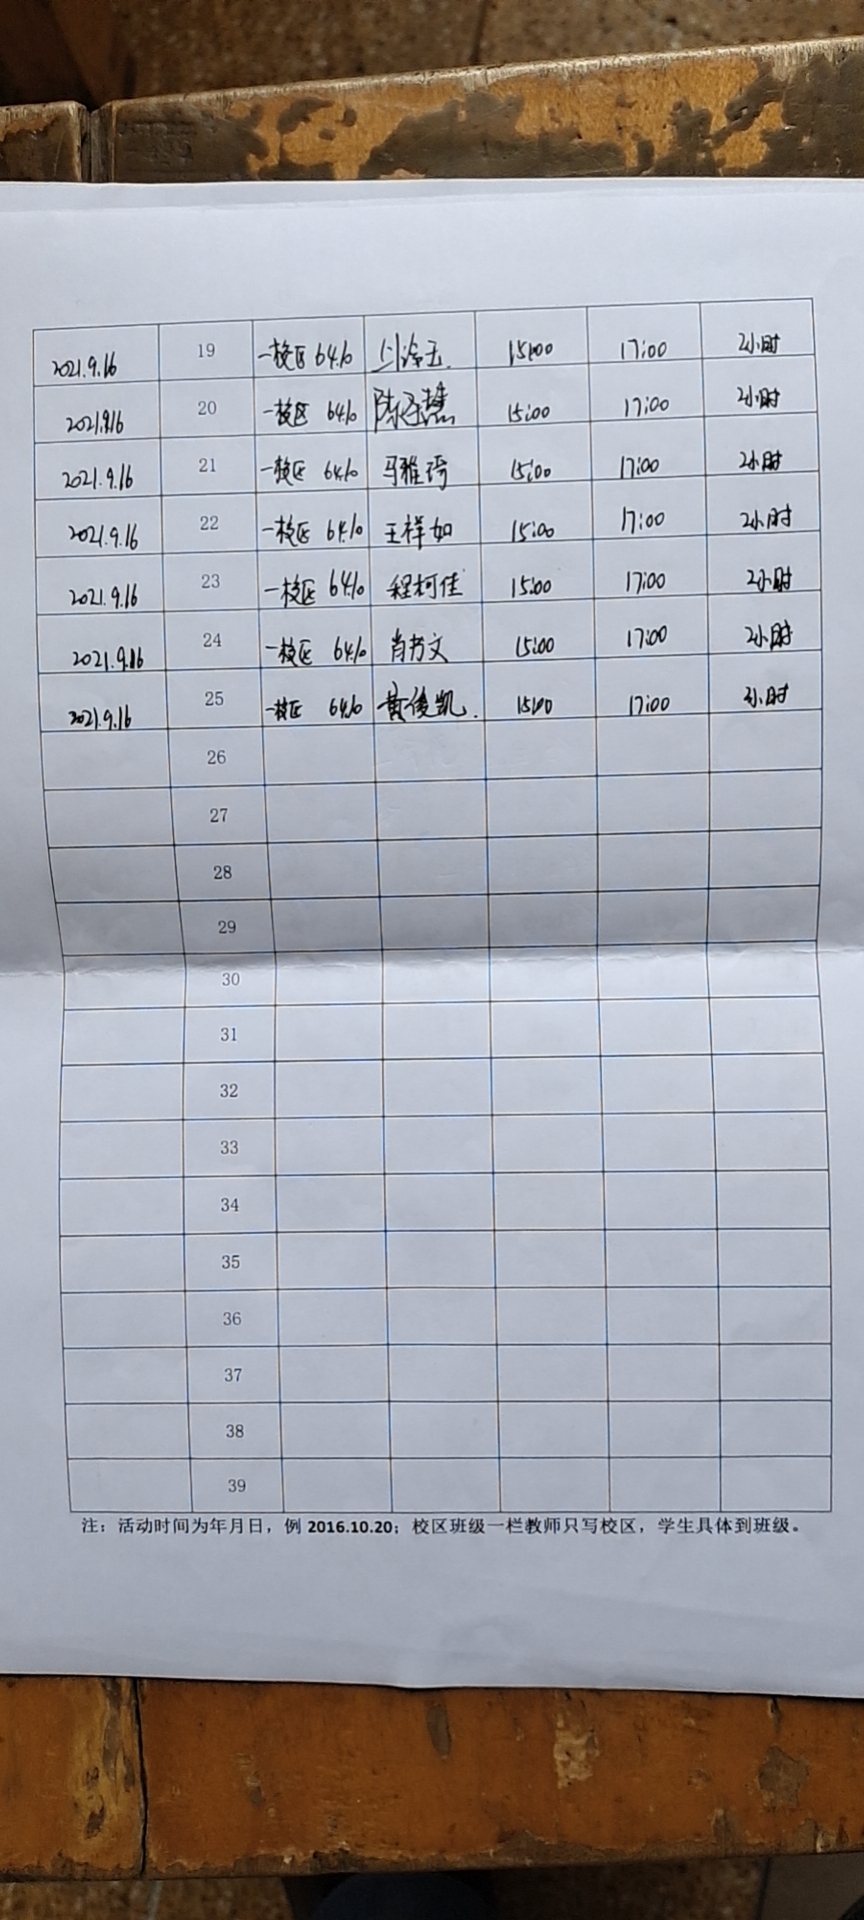 2021.9.16 19 一校区 6410 15:00 17:00 2小时
2021.9.16 20 一校区 6410 15:00 17:00 2小时
2021.9.16 21 一校区 6410 马雅琦 15:00 17:00 2小时
2021.9.16 22 一校区 6410 王梓如 15:00 17:00 2小时
2021.9.16 23 一校区 6410 程柯佳 15:00 17:00 2小时
2021.9.16 24 一校区 6410 肖书文 15:00 17:00 2小时
2021.9.16 25 一校区 6410 黄俊凯. 15:00 17:00 2小时
26
27
28
29
30
31
32
33
34
35
36
37
38
39
注：活动时间为年月日，例 2016.10.20；校区班级一栏教师只写校区，学生具体到班级。